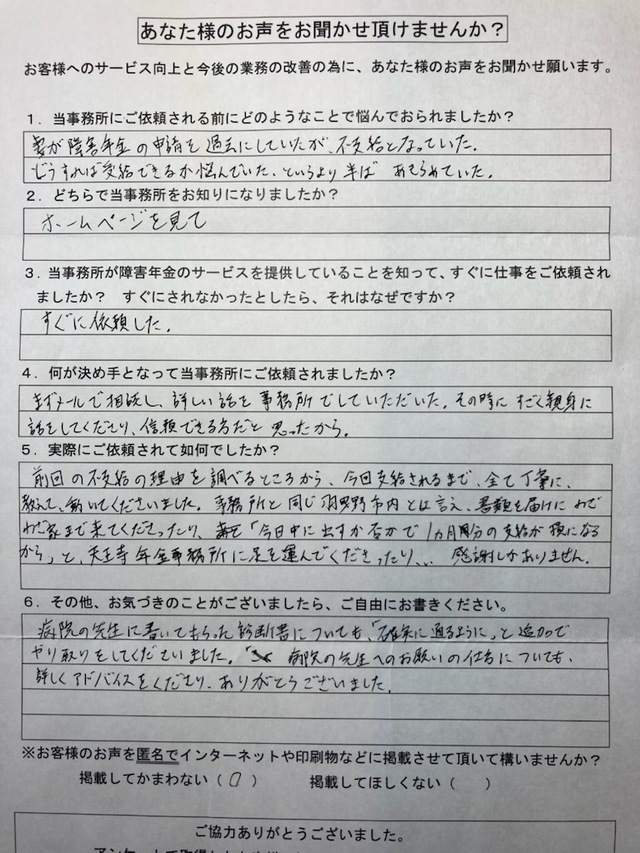 あなた様のお声をお聞かせ頂けませんか？
お客様へのサービス向上と今後の業務の改善の為に、あなた様のお声をお聞かせ願います。
１．当事務所にご依頼される前にどのようなことで悩んでおられましたか？
妻が障害年金の申請を過去にしていたが、不支給となっていた。
どうすれば受給できるか悩んでいた、というより半ば あきらめていた。
２．どちらで当事務所をお知りになりましたか？
ホームページを見て
３．当事務所が障害年金のサービスを提供していることを知って、すぐに仕事をご依頼され
ましたか？ すぐにされなかったとしたら、それはなぜですか？
すぐに依頼した。
４．何が決め手となって当事務所にご依頼されましたか？
まずメールで相談し、詳しい話を事務所でしていただいた。その時にすごく親身に
話をしてくださり、信頼できる方だと思ったから。
５．実際にご依頼されて如何でしたか？
前回の不支給の理由を調べるところから、今回支給されるまで、全て丁寧に、
教えて、動いてくださいました。事務所と同じ羽曳野市内とは言え、書類を届けにわざ
わざ家まで来てくださったり、「今日中に出すか否かで1ヵ月間分の支給が損になる
から」と、天王寺年金事務所に足を運んでくださったり、… 感謝しかありません。
６．その他、お気づきのことがございましたら、ご自由にお書きください。
病院の先生に書いてもらった診断書についても、「確実に通るように」と追加で
やり取りをしてくださいました。 病院の先生へのお願いの仕方についても、
詳しくアドバイスをくださり、ありがとうございました。
※お客様のお声を匿名でインターネットや印刷物などに掲載させて頂いて構いませんか？
掲載してかまわない（ ○ ） 掲載してほしくない（ ）
ご協力ありがとうございました。